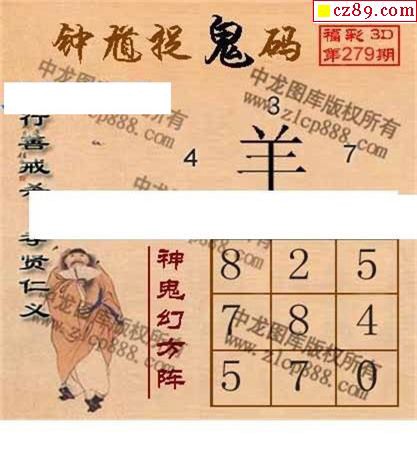 cz89.com
钟馗捉鬼码
福彩3D
第279期
中龙图库版权所有
www.zlcp888.com
3
4
羊
7
行善戒杀
孝贤仁义
神鬼幻方阵
8 2 5
7 8 4
5 7 0
中龙图库版权所有
www.zlcp888.com
中龙图库版权所有
www.zlcp888.com